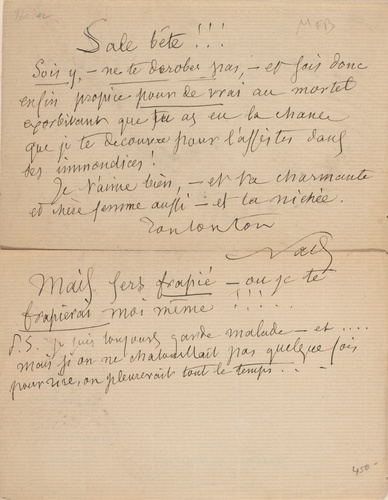 MFB
Sale bête ! ! !
Sois y, – ne te derobes pas, – et fois donc
enfin propice pour de vrai au mortel
exorbitant que tu as eu la chance
que je te decouvre pour l'affistes dans
tes immondices !
Je t'aime bien, – et ta charmante
et chère femme aussi – et ta nichée.
Tontonton
Nad
Mais sers frapié – ou je te
frapierai moi même ! ! ! . . .
P.S. je suis toujours garde malade – et ....
mais si on ne chatouillait pas quelque fois
pour rire, on pleurerait tout le temps . . .
450 -